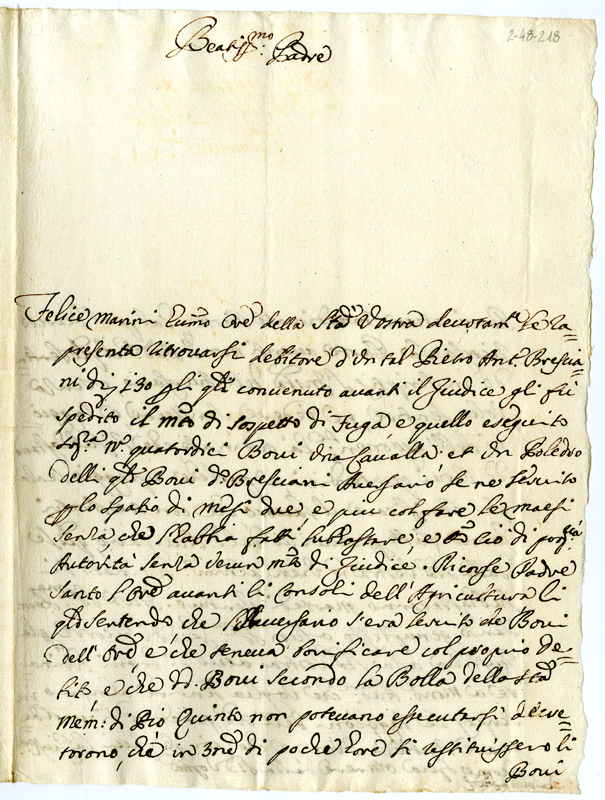 2-48-218
Beatiss.mo Padre
Felice Marini Hum.mo Ore della Stà Vostra devotam.te le ra=
presenta ritrovarsi debitore d'un tal Pietro Ant.o Brescia=
ni di 130 p li q.li convenuto avanti il Giudice gli fù
spedito il m.to di sospetto di Fuga e quello eseguito
n.o quatordici Bovi una Cavalla et un Poledro
delli q.li Bovi d.o Bresciani Aversario se ne è servito
p lo spatio di mesi due e più col fare le maesi
senza che l'habbia fatti subhastare, e tt.o ciò di prop.a
Autorità senza verun m.to di Giudice. Ricorse Padre
Santo l'Ore avanti li Consoli dell'Agricultura li
q.li sentendo che l'Aversario s'era servito de Bovi
dell'Ore e che doveva bonificare col proprio de=
bito, e che d.i Bovi secondo la Bolla della Stà
Mem: di Pio Quinto non potevano essecutarsi decre=
torono, che in ord.e di poche hore si restituissero li
Bovi